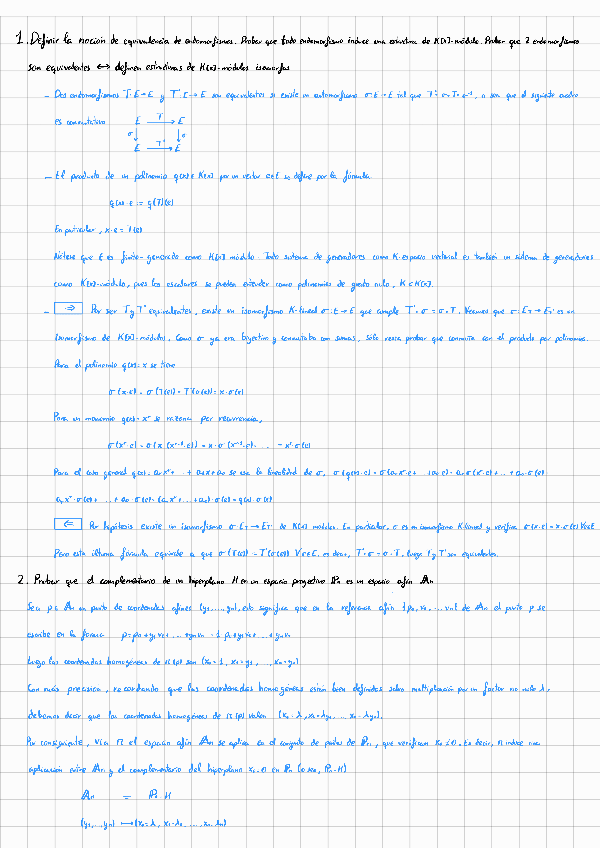 1. Definir la noción de equivalencia de endomorfismos. Probar que todo endomorfismo induce una estructura de K[x]-módulo. Probar que 2 endomorfismos
son equivalentes ↔ definen estructuras de K[x]-módulos isomorfas
- Dos endomorfismos T: E→E y T': E→E son equivalentes si existe un automorfismo σ: E→E tal que T' = σ∘T∘σ⁻¹, o sea que el siguiente cuadro
es conmutativo E T→ E
σ↓ ↓σ
E T'→ E
- El producto de un polinomio q(x) ∈ K[x] por un vector e∈E se define por la fórmula
q(x)·e := q(T)(e)
En particular, x·e = T(e)
Nótese que E es finito-generado como K[x]-módulo. Todo sistema de generadores como K-espacio vectorial es también un sistema de generadores
como K[x]-módulo, pues los escalares se pueden entender como polinomios de grado nulo, K⊂K[x].
- ⇒ Por ser T y T' equivalentes, existe un isomorfismo K-lineal σ: E→E que cumple T'∘σ = σ∘T. Veamos que σ: E_T→E_T' es un
isomorfismo de K[x]-módulos. Como σ ya era biyectivo y conmutaba con sumas, sólo resta probar que conmuta con el producto por polinomios.
Para el polinomio q(x) = x se tiene
σ(x·e) = σ(T(e)) = T'(σ(e)) = x·σ(e)
Para un monomio q(x) = xʳ se razona por recurrencia,
σ(xʳ·e) = σ(x·(xʳ⁻¹·e)) = x·σ(xʳ⁻¹·e) = ... = xʳ·σ(e)
Para el caso general q(x) = aᵣxʳ + ... + a₁x + a₀ se usa la linealidad de σ, σ(q(x)·e) = σ(aᵣxʳ·e + ... + a₀·e) = aᵣσ(xʳ·e) + ... + a₀·σ(e)
aᵣxʳ·σ(e) + ... + a₀·σ(e) = (aᵣxʳ + ... + a₀)·σ(e) = q(x)·σ(e)
⇐ Por hipótesis existe un isomorfismo σ: E_T→E_T' de K[x]-módulos. En particular, σ es un isomorfismo K-lineal y verifica σ(x·e) = x·σ(e) ∀e∈E
Pero esta última fórmula equivale a que σ(T(e)) = T'(σ(e)) ∀e∈E, es decir, T'∘σ = σ∘T, luego T y T' son equivalentes.
2. Probar que el complementario de un hiperplano H en un espacio proyectivo ℙn es un espacio afín 𝔸n
Sea p ∈ 𝔸n un punto de coordenadas afines (y₁,...,yn), esto significa que en la referencia afín {p₀, v₁, ..., vn} de 𝔸n el punto p se
escribe en la forma p = p₀ + y₁v₁ + ... + ynvn = 1·p₀ + y₁v₁ + ... + ynvn
Luego las coordenadas homogéneas de π(p) son (x₀ = 1, x₁ = y₁, ..., xn = yn)
Con más precisión, recordando que las coordenadas homogéneas están bien definidas salvo multiplicación por un factor no nulo λ,
debemos decir que las coordenadas homogéneas de π(p) valen (x₀ = λ, x₁ = λy₁, ..., xn = λyn).
Por consiguiente, vía π el espacio afín 𝔸n se aplica en el conjunto de puntos de ℙn, que verifican x₀ ≠ 0. Es decir, π induce una
aplicación entre 𝔸n y el complementario del hiperplano x₀ = 0 en ℙn (o sea, ℙn - H)
𝔸n = ℙn - H